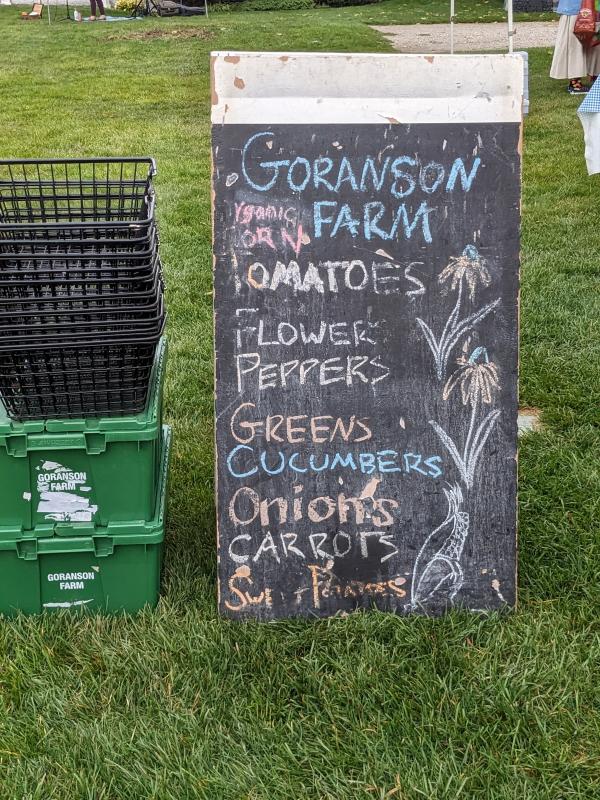 GORANSON
FARM
ORGANIC
CORN
TOMATOES
FLOWERS
PEPPERS
GREENS
CUCUMBERS
Onions
CARROTS
SWEET POTATOES
GORANSON
FARM
GORANSON
FARM